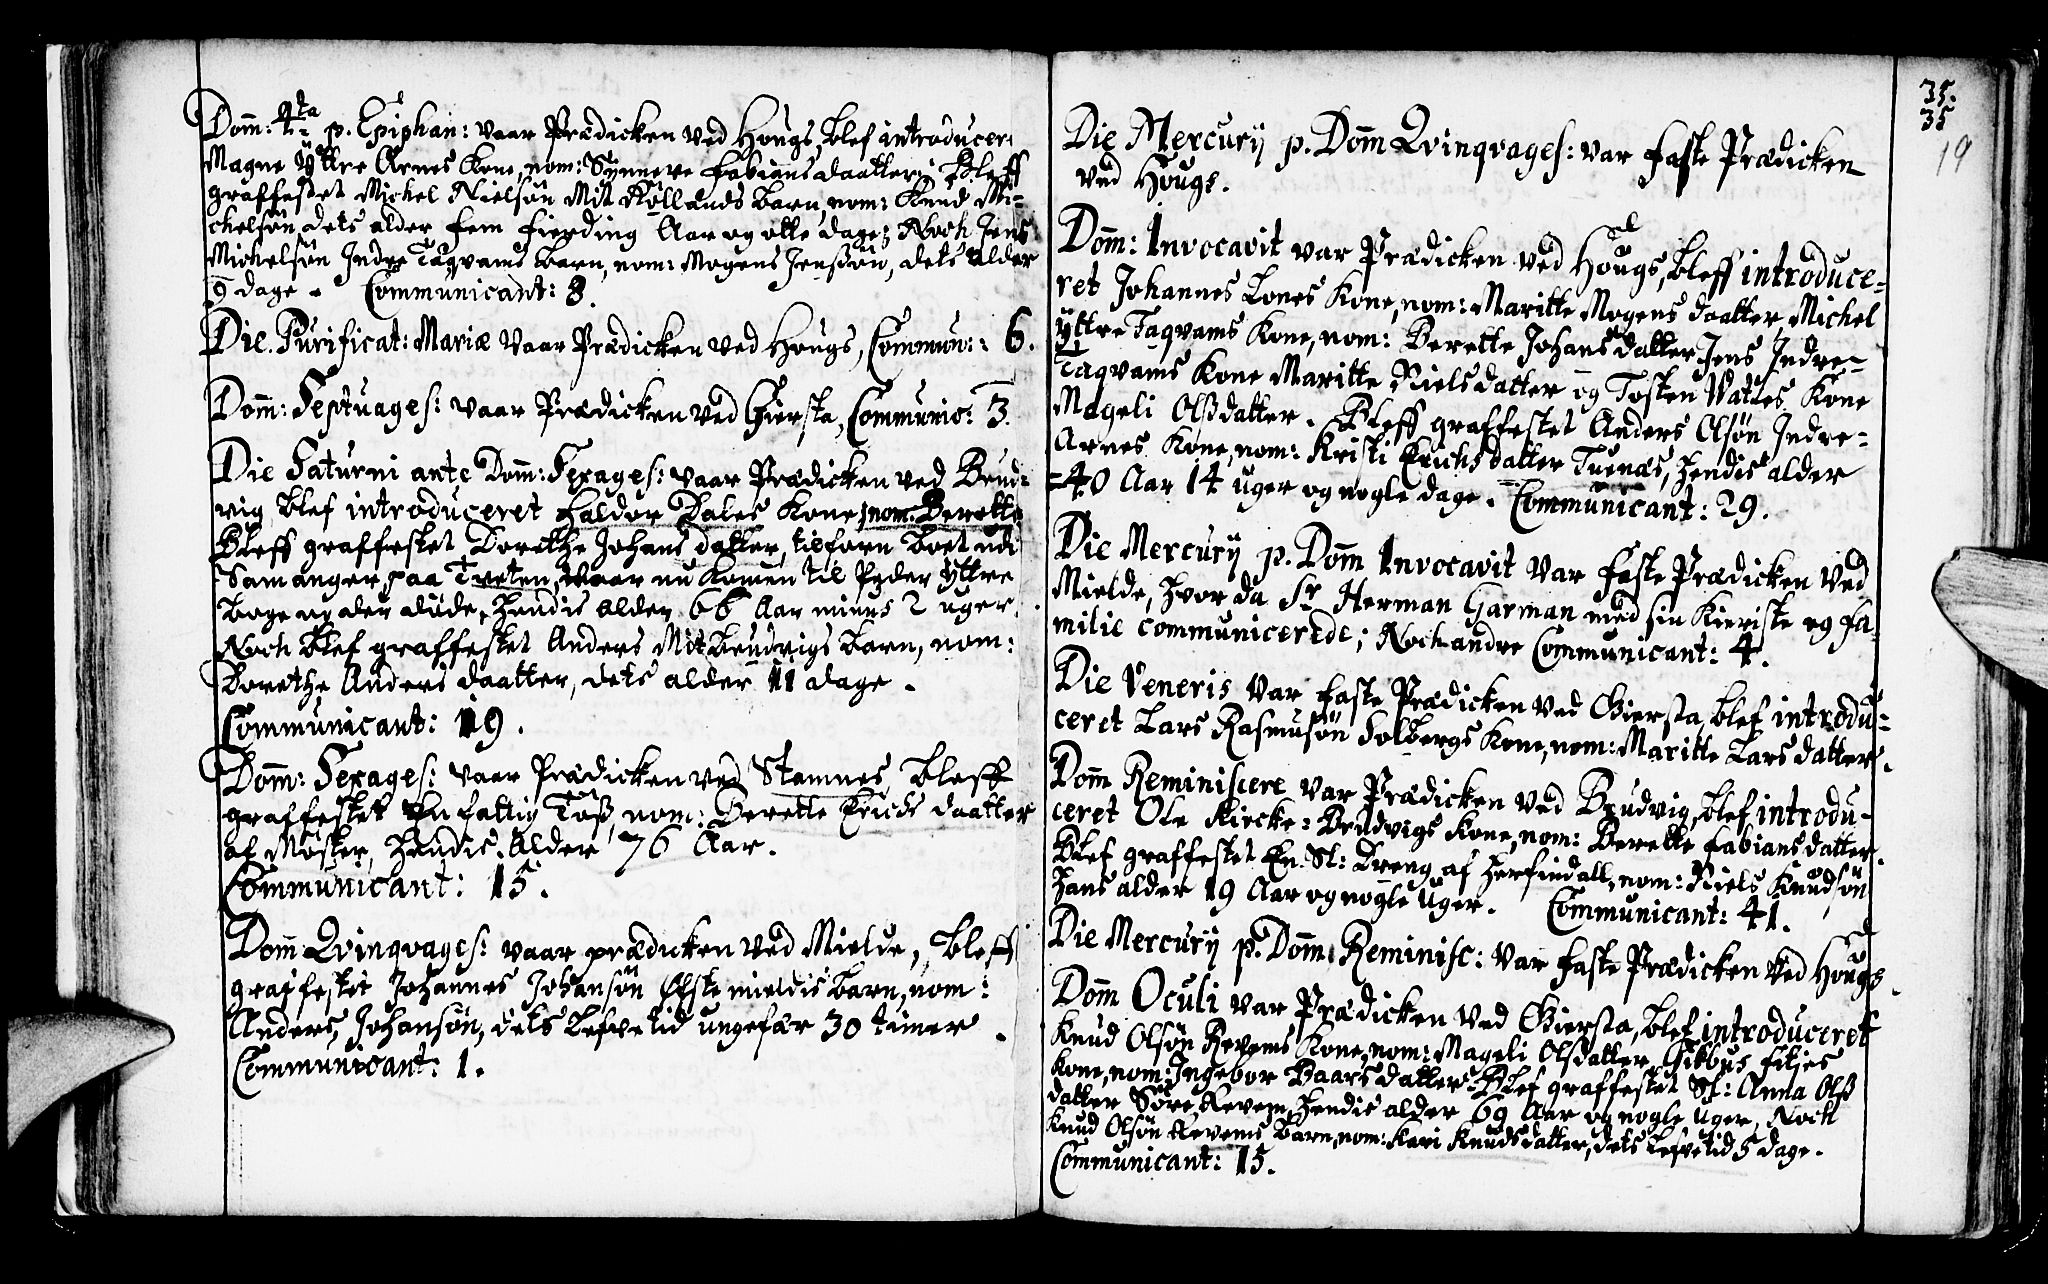 Dom: 4ta p. Epiphan: vaar Prædicken ved Hougs, Blef introducer:
Magne Yttre Arnes Kone, nom: Synneve Fabians daatter; Bleff
graffestet Michel Nielsøn Mit Kollands Barn, nom: Knud Mi-
chelsøn, dets alder fem fierding Aar og otte dage; Noch Jens
Michelsøn Indre Taqvams Barn, nom: Mogens Jenssøn, dets Alder
9 dage. Communicant: 8.
Die Purificat: Mariæ vaar Prædicken ved Hougs, Commun: 6.
Dom: Septuages: vaar Prædicken ved Giersta, Communic: 3.
Die Saturni ante Dom: Sexages: vaar Prædicken ved Brud-
vig Blef introduceret Haldor Dales Kone, nom: Berette
Bleff graffestet Dorethe Johans datter, tilforn Boet udi
Samanger paa Tveten, vaar nu komen til Peder Yttre
Boge og der døde, hendis alder 66 Aar minus 2 uger.
Noch Blef graffestet Anders Mit Brudvigs Barn, nom:
Dorethe Anders daatter, dets alder 11 dage.
Communicant: 19.
Dom: Sexages: vaar Prædicken ved Stamnes, Bleff
graffestet En fattig Tøs, nom: Berette Erichs daatter
af Mosker, hendis Alder 76 Aar.
Communicant: 15.
Dom Qvinqvages: vaar prædicken ved Mielde, Bleff
graffestet Johannes Johansøn Øfste mieldis Barn, nom:
Anders Johansøn, dets Lefvetid ungefær 30 timer.
Communicant: 1.
35.
35
19
Die Mercurij p. Dom Qvinqvages: var Faste Prædicken
ved Hougs.
Dom: Invocavit var Prædicken ved Hougs, Bleff introduce-
ret Johannes Lones Kone, nom: Maritte Mogens daatter, Michel
Yttre Taqvams Kone, nom: Berette Johans datter Jens Indre-
Taqvams Kone Maritte Nielsdatter og Tosten Vatles Kone
Mageli Olssdatter. Bleff graffestet Anders Olsøn Indre-
Arnes Kone, nom: Kristi Erichsdatter Tuenæs, hendis alder
40 Aar 14 uger og nogle dage. Communicant: 29.
Die Mercurij p. Dom Invocavit var Faste Prædicken ved
Mielde, hvor da Sr Herman Garman med sin Kieriste og Fa-
milie communicerede; Noch andre Communicant: 4.
Die Veneris var Faste Prædicken ved Giersta, Blef introdu-
ceret Lars Rasmusøn Solbergs Kone, nom: Maritte Larsdatter.
Dom Reminiscere var Prædicken ved Brudvig, Blef introdu-
ceret Ole Kircke-Brudvigs Kone, nom: Berette Fabians datter.
Blef graffestet En Sl: Dreng af Herfindall, nom: Niels Knudsøn
hans alder 19 Aar og nogle Uger. Communicant: 41.
Die Mercurij p. Dom Reminisc: var Faste Prædicken ved Hougs.
Dom Oculi var Prædicken ved Giersta, Blef introduceret
Knud Olsøn Revems Kone, nom: Mageli Olsdatter, Filjes
Kone, nom: Ingebor Baarsdatter. Blef graffestet Sl: Anna Olss
datter Søre Revem, hendis alder 69 Aar og nogle Uger, Noch
Knud Olsøn Revems Barn, nom: Kari Knudsdatter, dets Lefvetid 5 dage.
Communicant: 15.